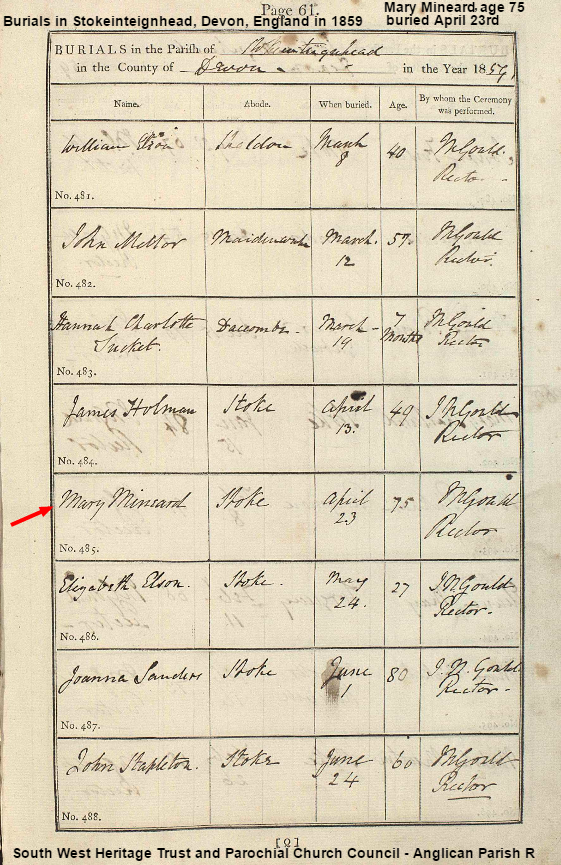 Page 61.
Burials in Stokeinteignhead, Devon, England in 1859
Mary Mineard age 75
buried April 23rd
BURIALS in the Parish of Stokeinteignhead
in the County of Devon in the Year 1859
Name. Abode. When buried. Age. By whom the Ceremony was performed.
William Elson Sheldon March 8 40 Gould Rector
No. 481.
John Mellor March. 12 57 Gould Rector.
No. 482.
Hannah Charlotte Tucket. Daccombe March 19 7 Months Gould Rector
No. 483.
James Holman Stoke April 13. 49 J. N. Gould Rector
No. 484.
Mary Mineard Stoke April 23 75 Gould Rector
No. 485.
Elizabeth Elson. Stoke. May 24. 27 J. N. Gould Rector.
No. 486.
Joanna Sanders Stoke June 1 80 J. N. Gould Rector
No. 487.
John Stapleton. Stoke June 24 60 Gould Rector
No. 488.
South West Heritage Trust and Parochial Church Council - Anglican Parish R